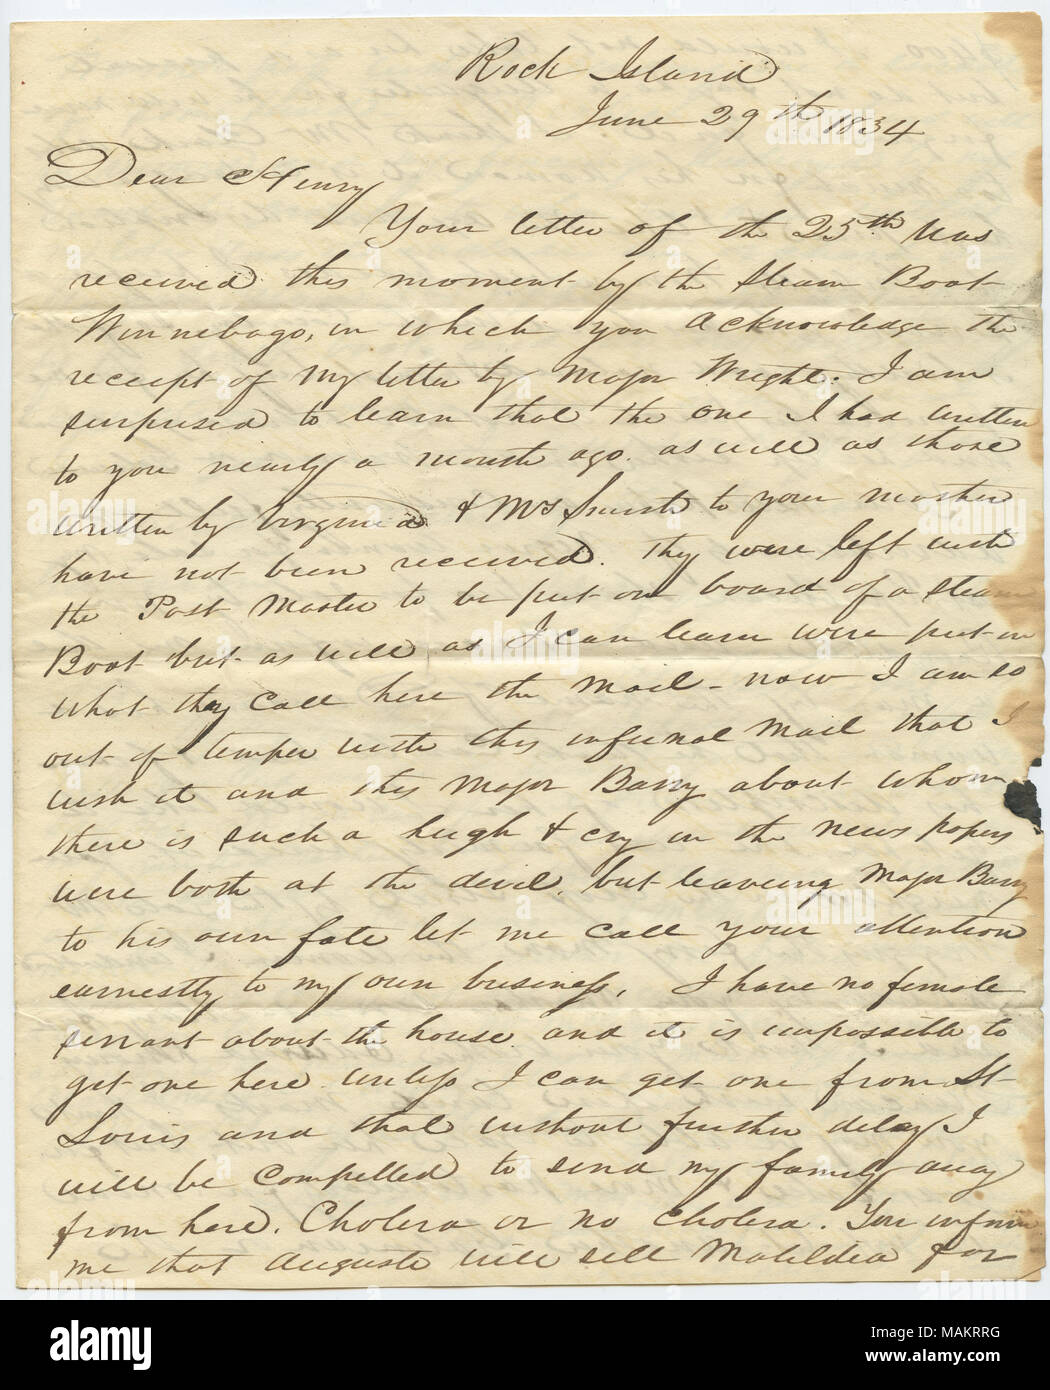 Rock Island
June 29th 1834
Dear Henry
Your letter of the 25th was
received this moment by the Steam Boat
Winnebago, in which you acknowledge the
receipt of my letter by Major Wright. I am
surprised to learn that the one I had written
to you nearly a month ago. as well as those
written by Virginia & Mrs to your mother
have not been received. they were left with
the Post Master to be put on board of a Steam
Boat but as well as I can learn were put in
what they call here the Mail - now I am so
out of temper with this infernal Mail that I
wish it and this Major Barry about whom
there is such a hugh & cry in the news papers
were both at the devil. but leaveing Major Barry
to his own fate let me call your attention
earnestly to my own business. I have no female
servant about the house and it is impossible to
get one here unless I can get one from St
Louis and that without further delay I
will be compelled to send my family away
from here. Cholera or no cholera. You inform
me that Auguste will sell Matildea for
alamy
alamy stock photo
MAKRRG
www.alamy.com